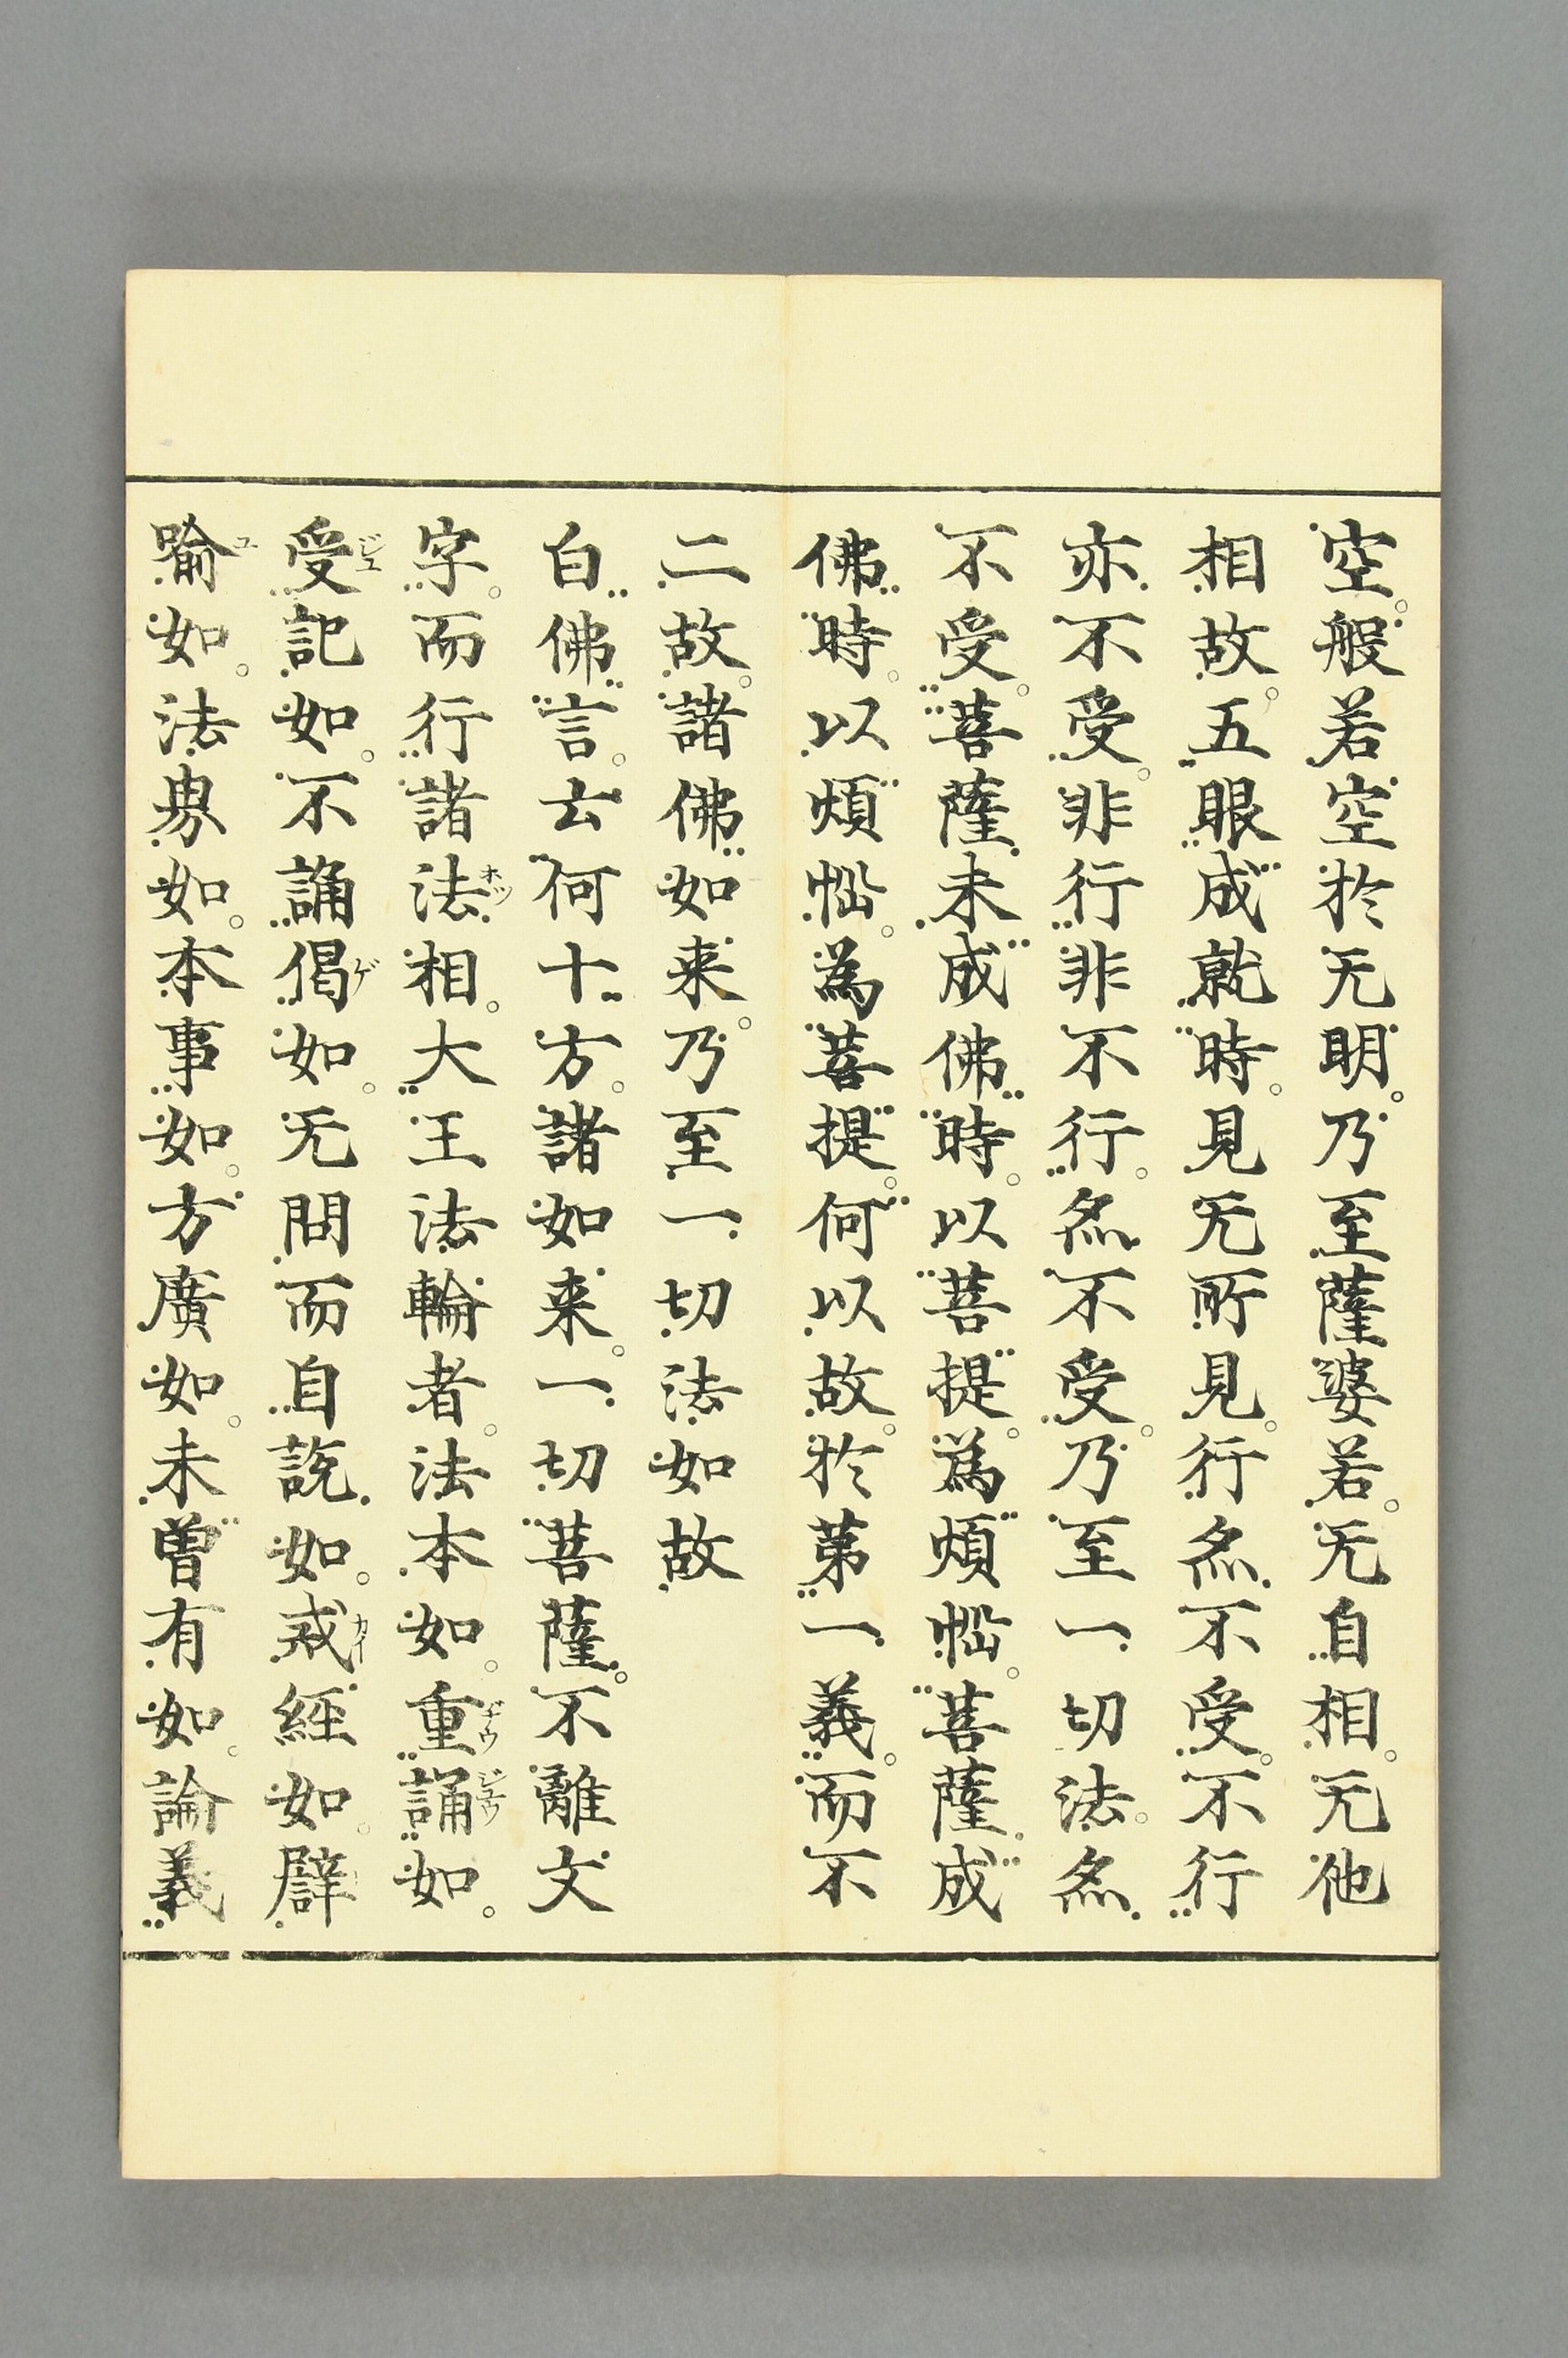 空般若空於无明乃至薩婆若无自相无他
相故五眼成就時見无所見行亦不受不行
亦不受非行非不行亦不受乃至一切法亦
不受菩薩未成佛時以菩提為煩惱菩薩成
佛時以煩惱為菩提何以故於第一義而不
二故諸佛如来乃至一切法如故
白佛言云何十方諸如来一切菩薩不離文
字而行諸法相大王法輪者法本如重誦如
受記如不誦偈如无問而自説如戒經如譬
喻如法界如本事如方廣如未曽有如論義
ホツ
ヂウ
ジユウ
ジユ
ゲ
カイ
ユ